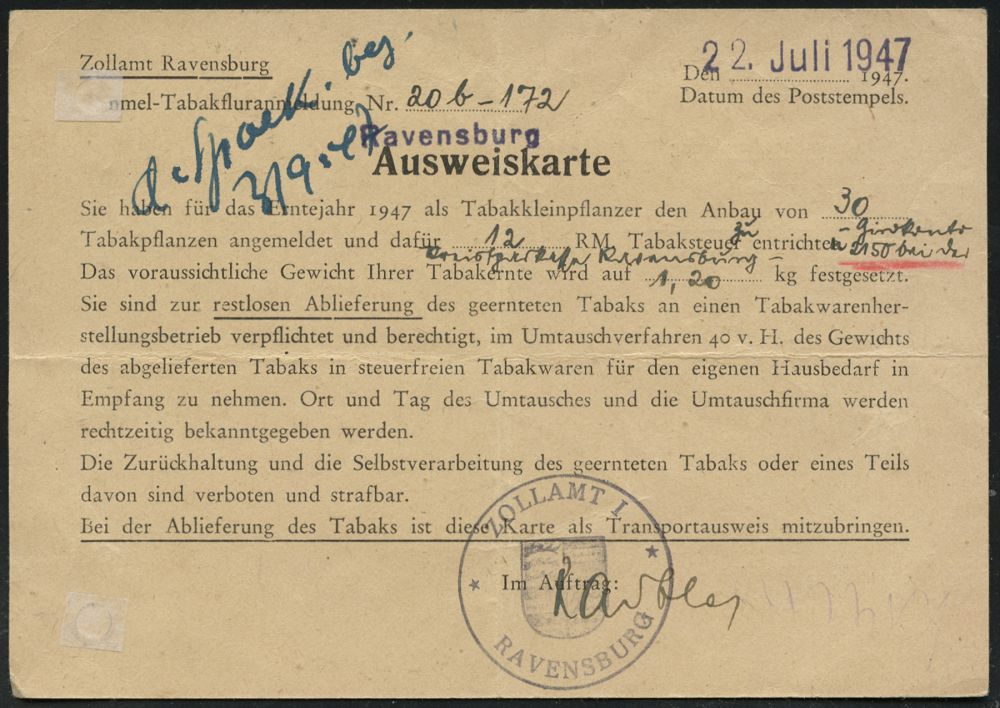 Zollamt Ravensburg
22. Juli 1947
Den 1947.
nmel-Tabakfluranmeldung Nr. 20b-172
Datum des Poststempels.
bez.
3/9.47
Ravensburg
Ausweiskarte
Sie haben für das Erntejahr 1947 als Tabakkleinpflanzer den Anbau von 30
Tabakpflanzen angemeldet und dafür 12 RM Tabaksteuer zu entrichten - Girokonto
2150 bei der
Kreissparkasse Ravensburg -
Das voraussichtliche Gewicht Ihrer Tabakernte wird auf 1,20 kg festgesetzt.
Sie sind zur restlosen Ablieferung des geernteten Tabaks an einen Tabakwarenher-
stellungsbetrieb verpflichtet und berechtigt, im Umtauschverfahren 40 v. H. des Gewichts
des abgelieferten Tabaks in steuerfreien Tabakwaren für den eigenen Hausbedarf in
Empfang zu nehmen. Ort und Tag des Umtausches und die Umtauschfirma werden
rechtzeitig bekanntgegeben werden.
Die Zurückhaltung und die Selbstverarbeitung des geernteten Tabaks oder eines Teils
davon sind verboten und strafbar.
Bei der Ablieferung des Tabaks ist diese Karte als Transportausweis mitzubringen.
ZOLLAMT I
Im Auftrag:
RAVENSBURG